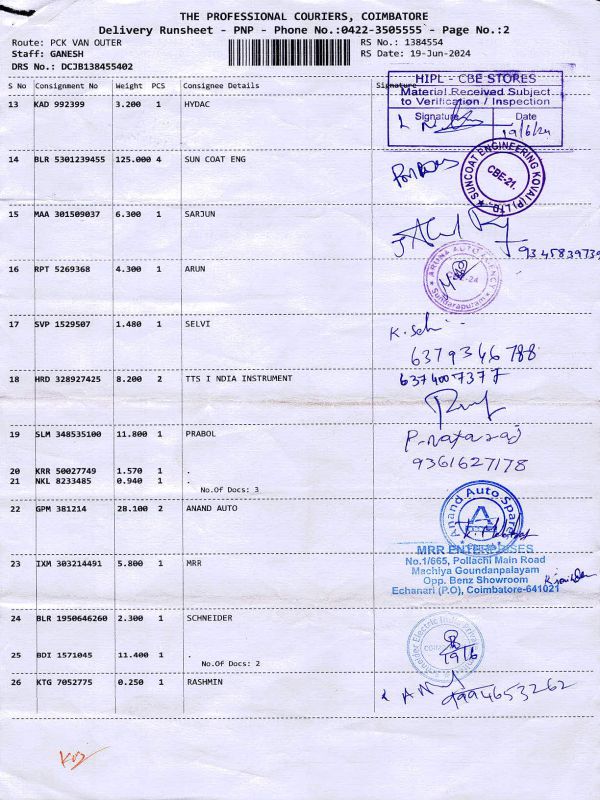 THE PROFESSIONAL COURIERS, COIMBATORE
Delivery Runsheet - PNP - Phone No.:0422-3505555 - Page No.:2
Route: PCK VAN OUTER RS No.: 1384554
Staff: GANESH RS Date: 19-Jun-2024
DRS No.: DCJB138455402
S No Consignment No Weight PCS Consignee Details Signature
HIPL - CBE STORES
Material Received Subject
to Verification / Inspection
Signature Date
19/6/24
13 KAD 992399 3.200 1 HYDAC
14 BLR 5301239455 125.000 4 SUN COAT ENG
SUNCOAT ENGINEERING KOVAI (P) LTD.
CBE-21.
15 MAA 301509037 6.300 1 SARJUN
9345839739
16 RPT 5269368 4.300 1 ARUN
ARUNA AUTO AGENCY
Sundarapuram
17 SVP 1529507 1.480 1 SELVI
6379346788
18 HRD 328927425 8.200 2 TTS I NDIA INSTRUMENT
6374007377
19 SLM 348535100 11.800 1 PRABOL
P-nataraj
9361627178
20 KRR 50027749 1.570 1 .
21 NKL 8233485 0.940 1 .
No.Of Docs: 3
22 GPM 381214 28.100 2 ANAND AUTO
Anand Auto Spares
23 IXM 3031214491 5.800 1 MRR
MRR ENTERPRISES
No.1/665, Pollachi Main Road
Machiya Goundanpalayam
Opp. Benz Showroom
Echanari (P.O), Coimbatore-641021
24 BLR 1950646260 2.300 1 SCHNEIDER
Schneider Electric India Private
19/6
25 BDI 1571045 11.400 1 .
No.Of Docs: 2
26 KTG 7052775 0.250 1 RASHMIN
9994653262